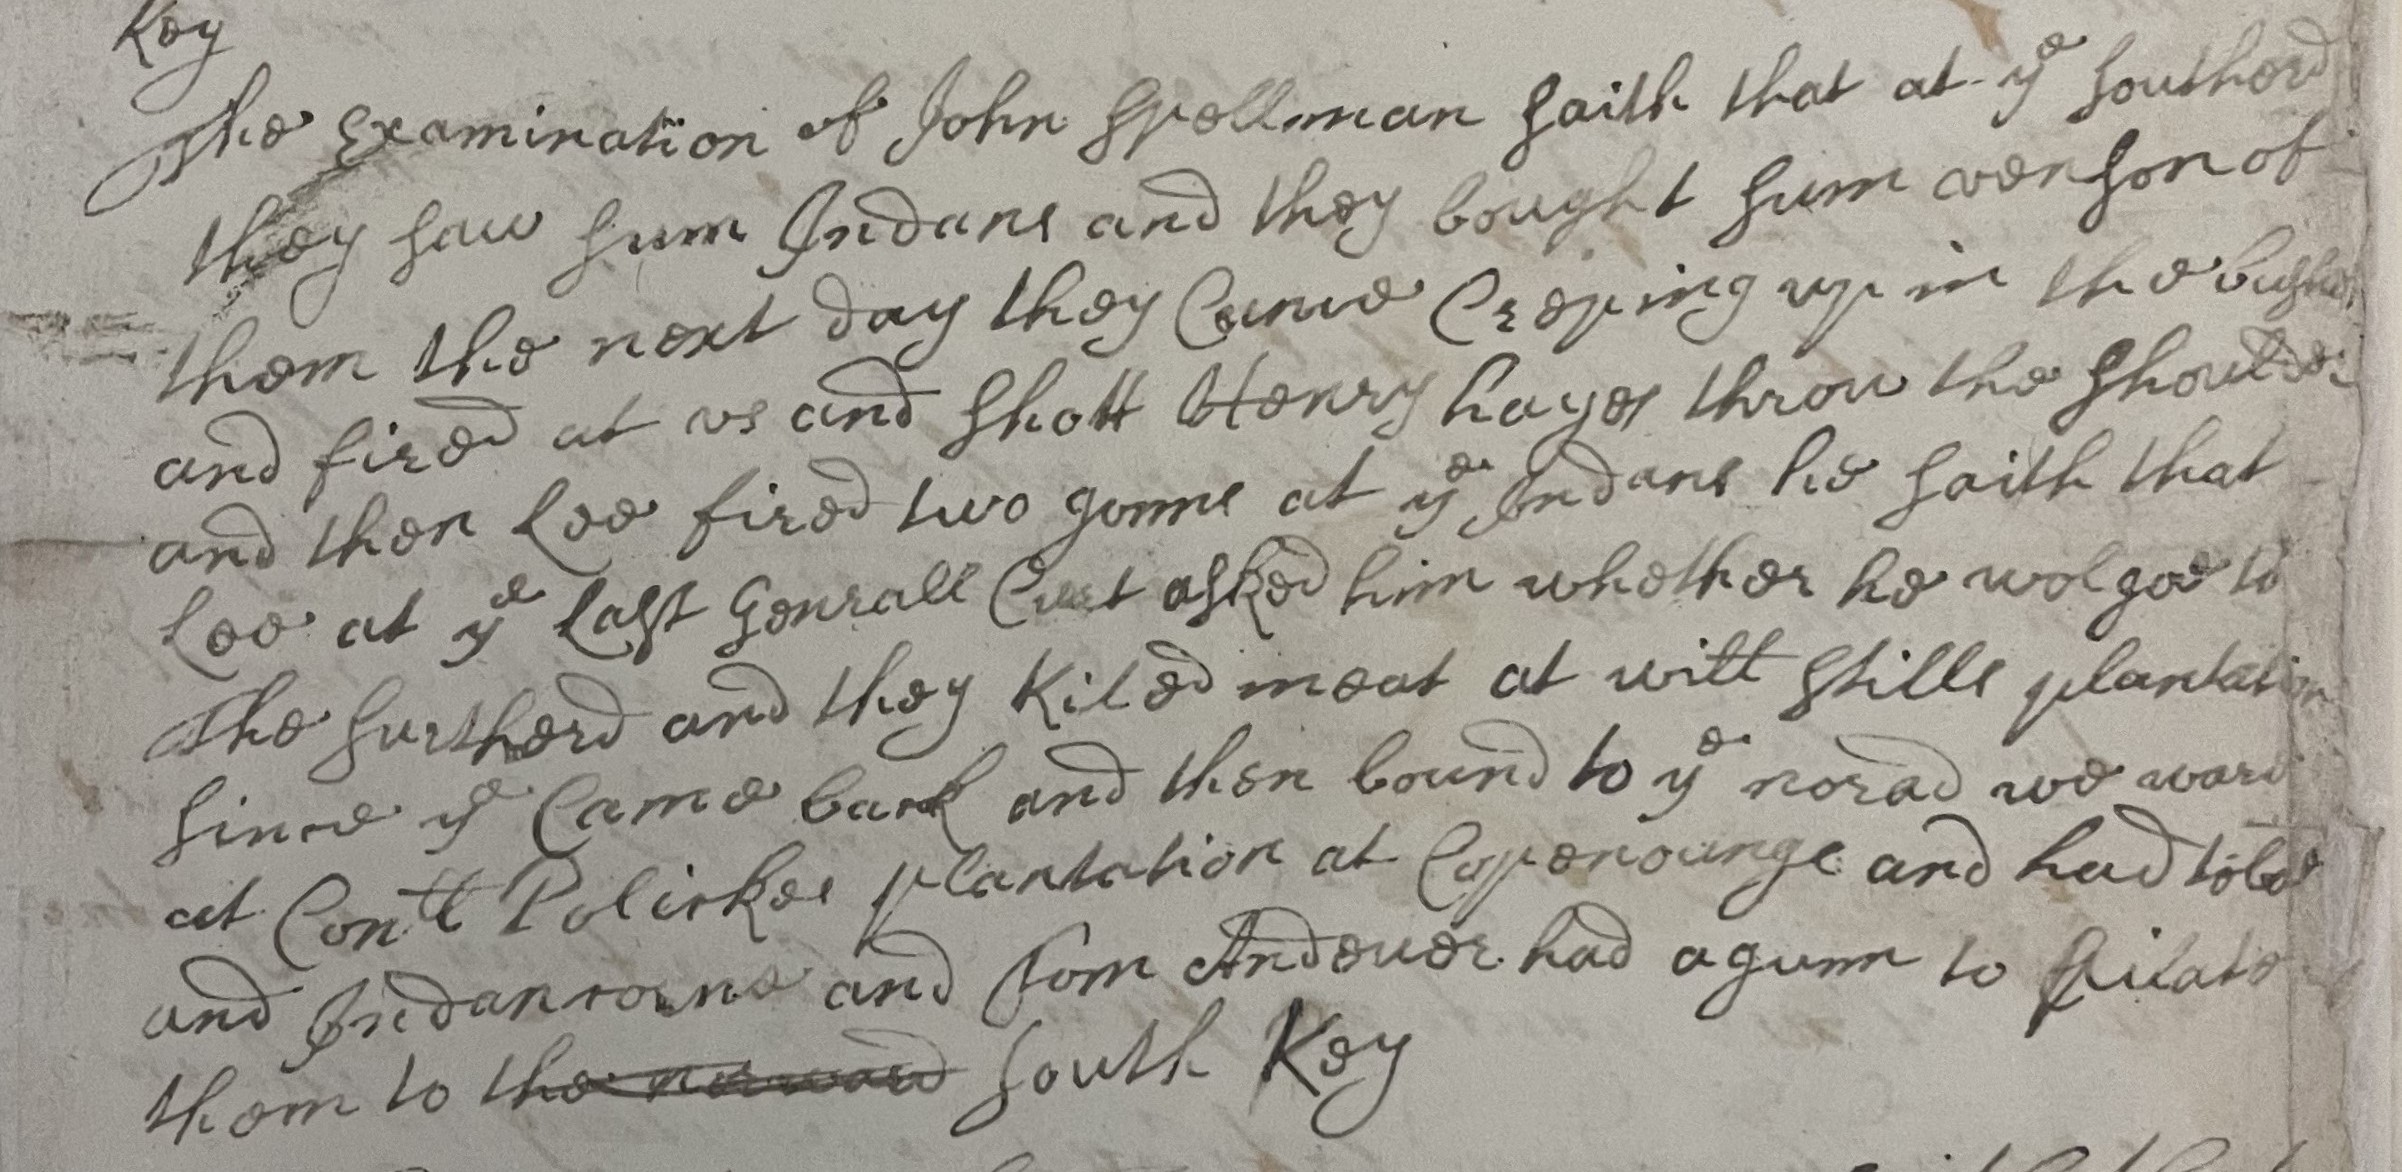 Key
The Examination of John Spellman saith that at ye Southerd
they saw sum Indans and they bought sum venson of
them the next day they Came Creping up in the bushes
and fired at vs and shott Henry hayes throu the shoulder
and then Lee fired two gonns at ye Indans he saith that
Lee at ye Last Genrall Curt asked him whether he wol goe to
The Surtherd and they Kiled meat at will Stills plantation
since ye Came back and then bound to ye norad we ward
at Plantation at and had
and Indan corne and Tom Andever had a gunn to Pilate
them to the norward South Key